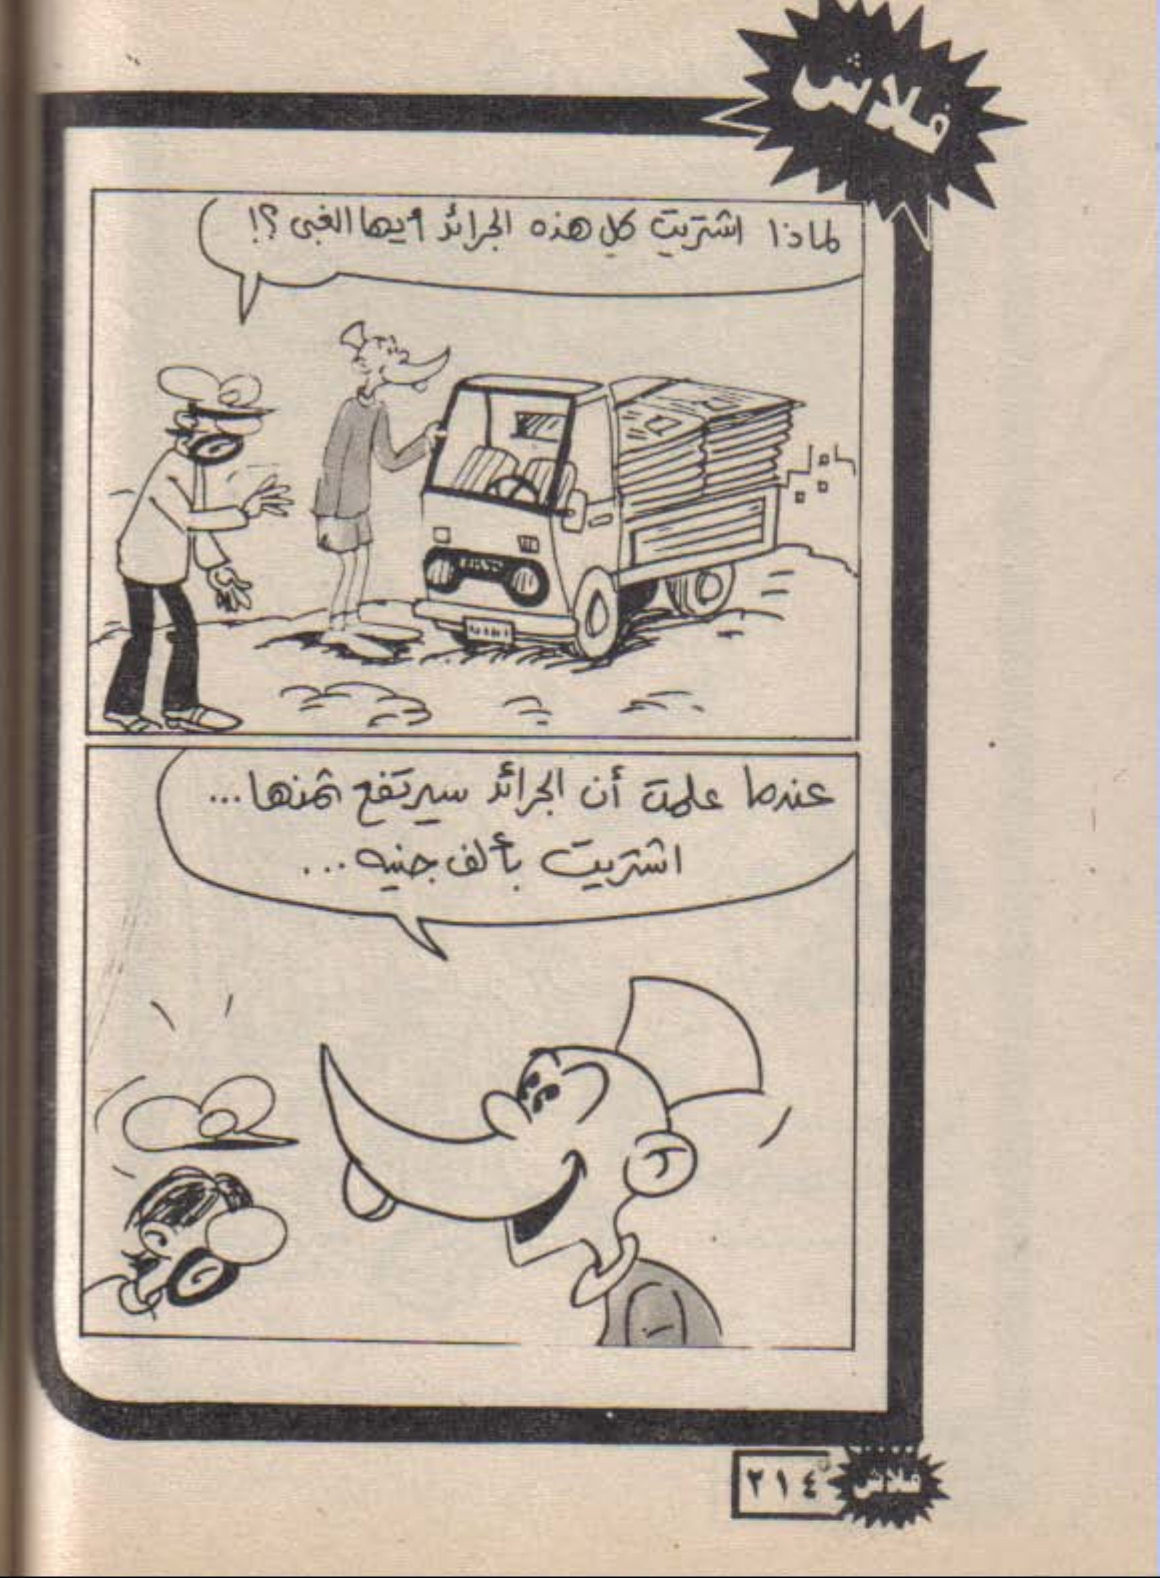 فلاش
لماذا اشتريت كل هذه الجرائد أيها الغبى ؟!
عندما علمت أن الجرائد سيرتفع ثمنها...
اشتريت بألف جنيه...
٢١٤
فلاش